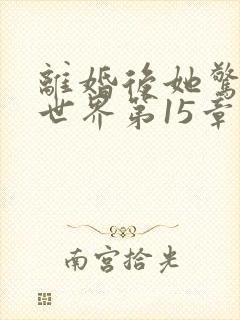 離婚後她驚
世界第15章
南宮拾光